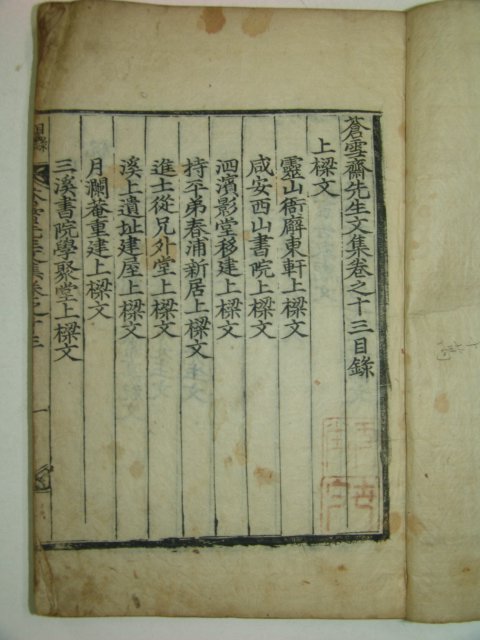 蒼雪齋先生文集卷之十三目錄
上樑文
靈山衙廨東軒上樑文
咸安西山書院上樑文
泗濱影堂移建上樑文
持平弟春浦新居上樑文
進士從兄外堂上樑文
溪上遺址建屋上樑文
月瀾菴重建上樑文
三溪書院學聚堂上樑文
目錄
蒼雪先生文集卷之十三
一